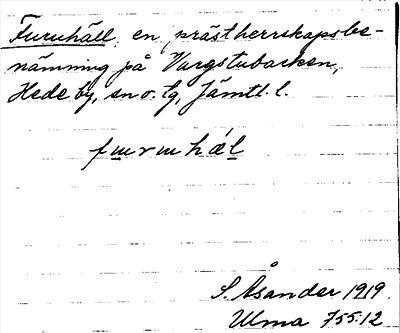 Furuhäll, en prästherrskapsbe-
nämning på Vargstubacken,
Hede by, sn o. tg, Jämtl. l.
furuhǽl
S. Åsander 1919.
Ulma 755:12